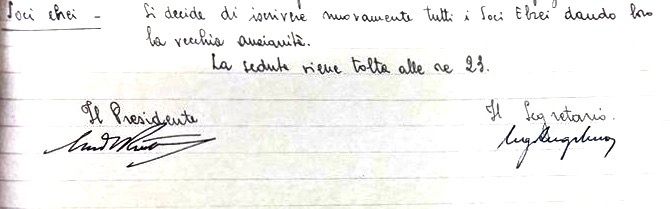 Soci ebrei - Si decide di iscrivere nuovamente tutti i Soci Ebrei dando loro
la vecchia anzianità.
La seduta viene tolta alle ore 23.
Il Presidente Il Segretario